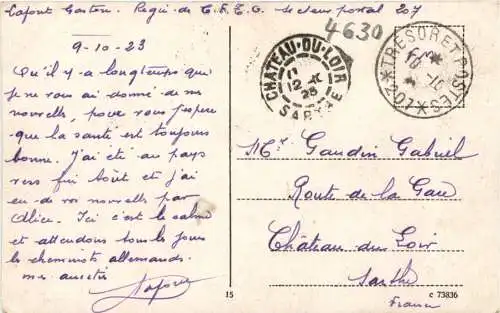 Lafont Gaston. Regie de C.F.T.G. secteur postal 207
4630
9-10-23
Qu'il y a longtemps que
je ne vous ai donné de mes
nouvelles, pour vous j'espère
que la santé est toujours
bonne. J'ai été au pays
vers fin Août et j'ai
eu de vos nouvelles par
Alice. Ici c'est le calme
et attendons tous les jours
les cheminots allemands.
mes amitiés
Lafont
CHATEAU-DU-LOIR
12 -X
23
SARTHE
*TRESOR ET POSTES*207*
Mr Gaudin Gabriel
Route de la Gare
Château du Loir
Sarthe
France
15
C 73836